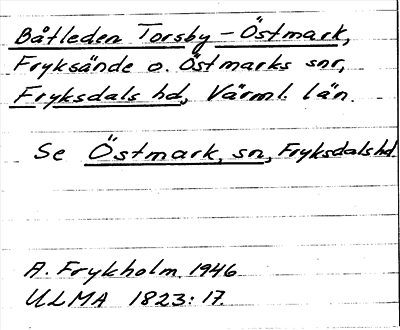 Båtleden Torsby - Östmark,
Fryksände o. Östmarks snr,
Fryksdals hd, Värml. län.
Se Östmark, sn, Fryksdals hd.
A. Frykholm 1946
ULMA 1823:17.